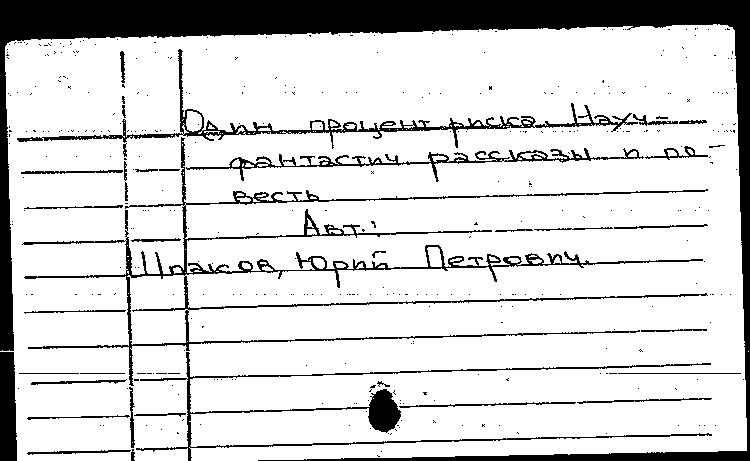 Один процент риска. Науч-
фантастич. рассказы и по-
весть
Авт.:
Шпаков, Юрий Петрович.